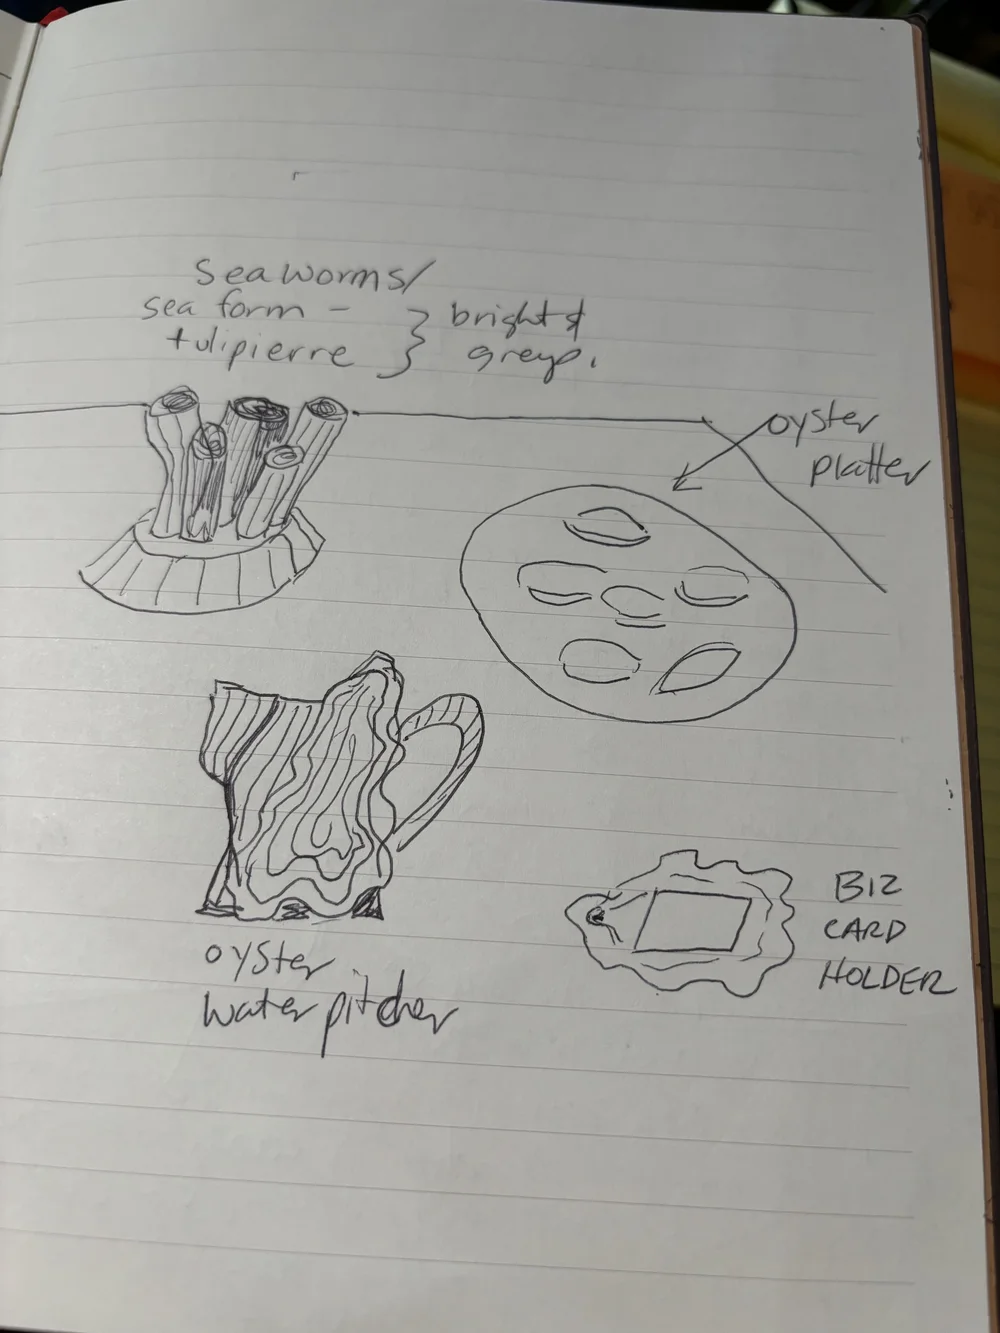 Sea worms/
sea form -
tulipierre } bright &
greys.
oyster
platter
oyster
water pitcher
BIZ
CARD
HOLDER